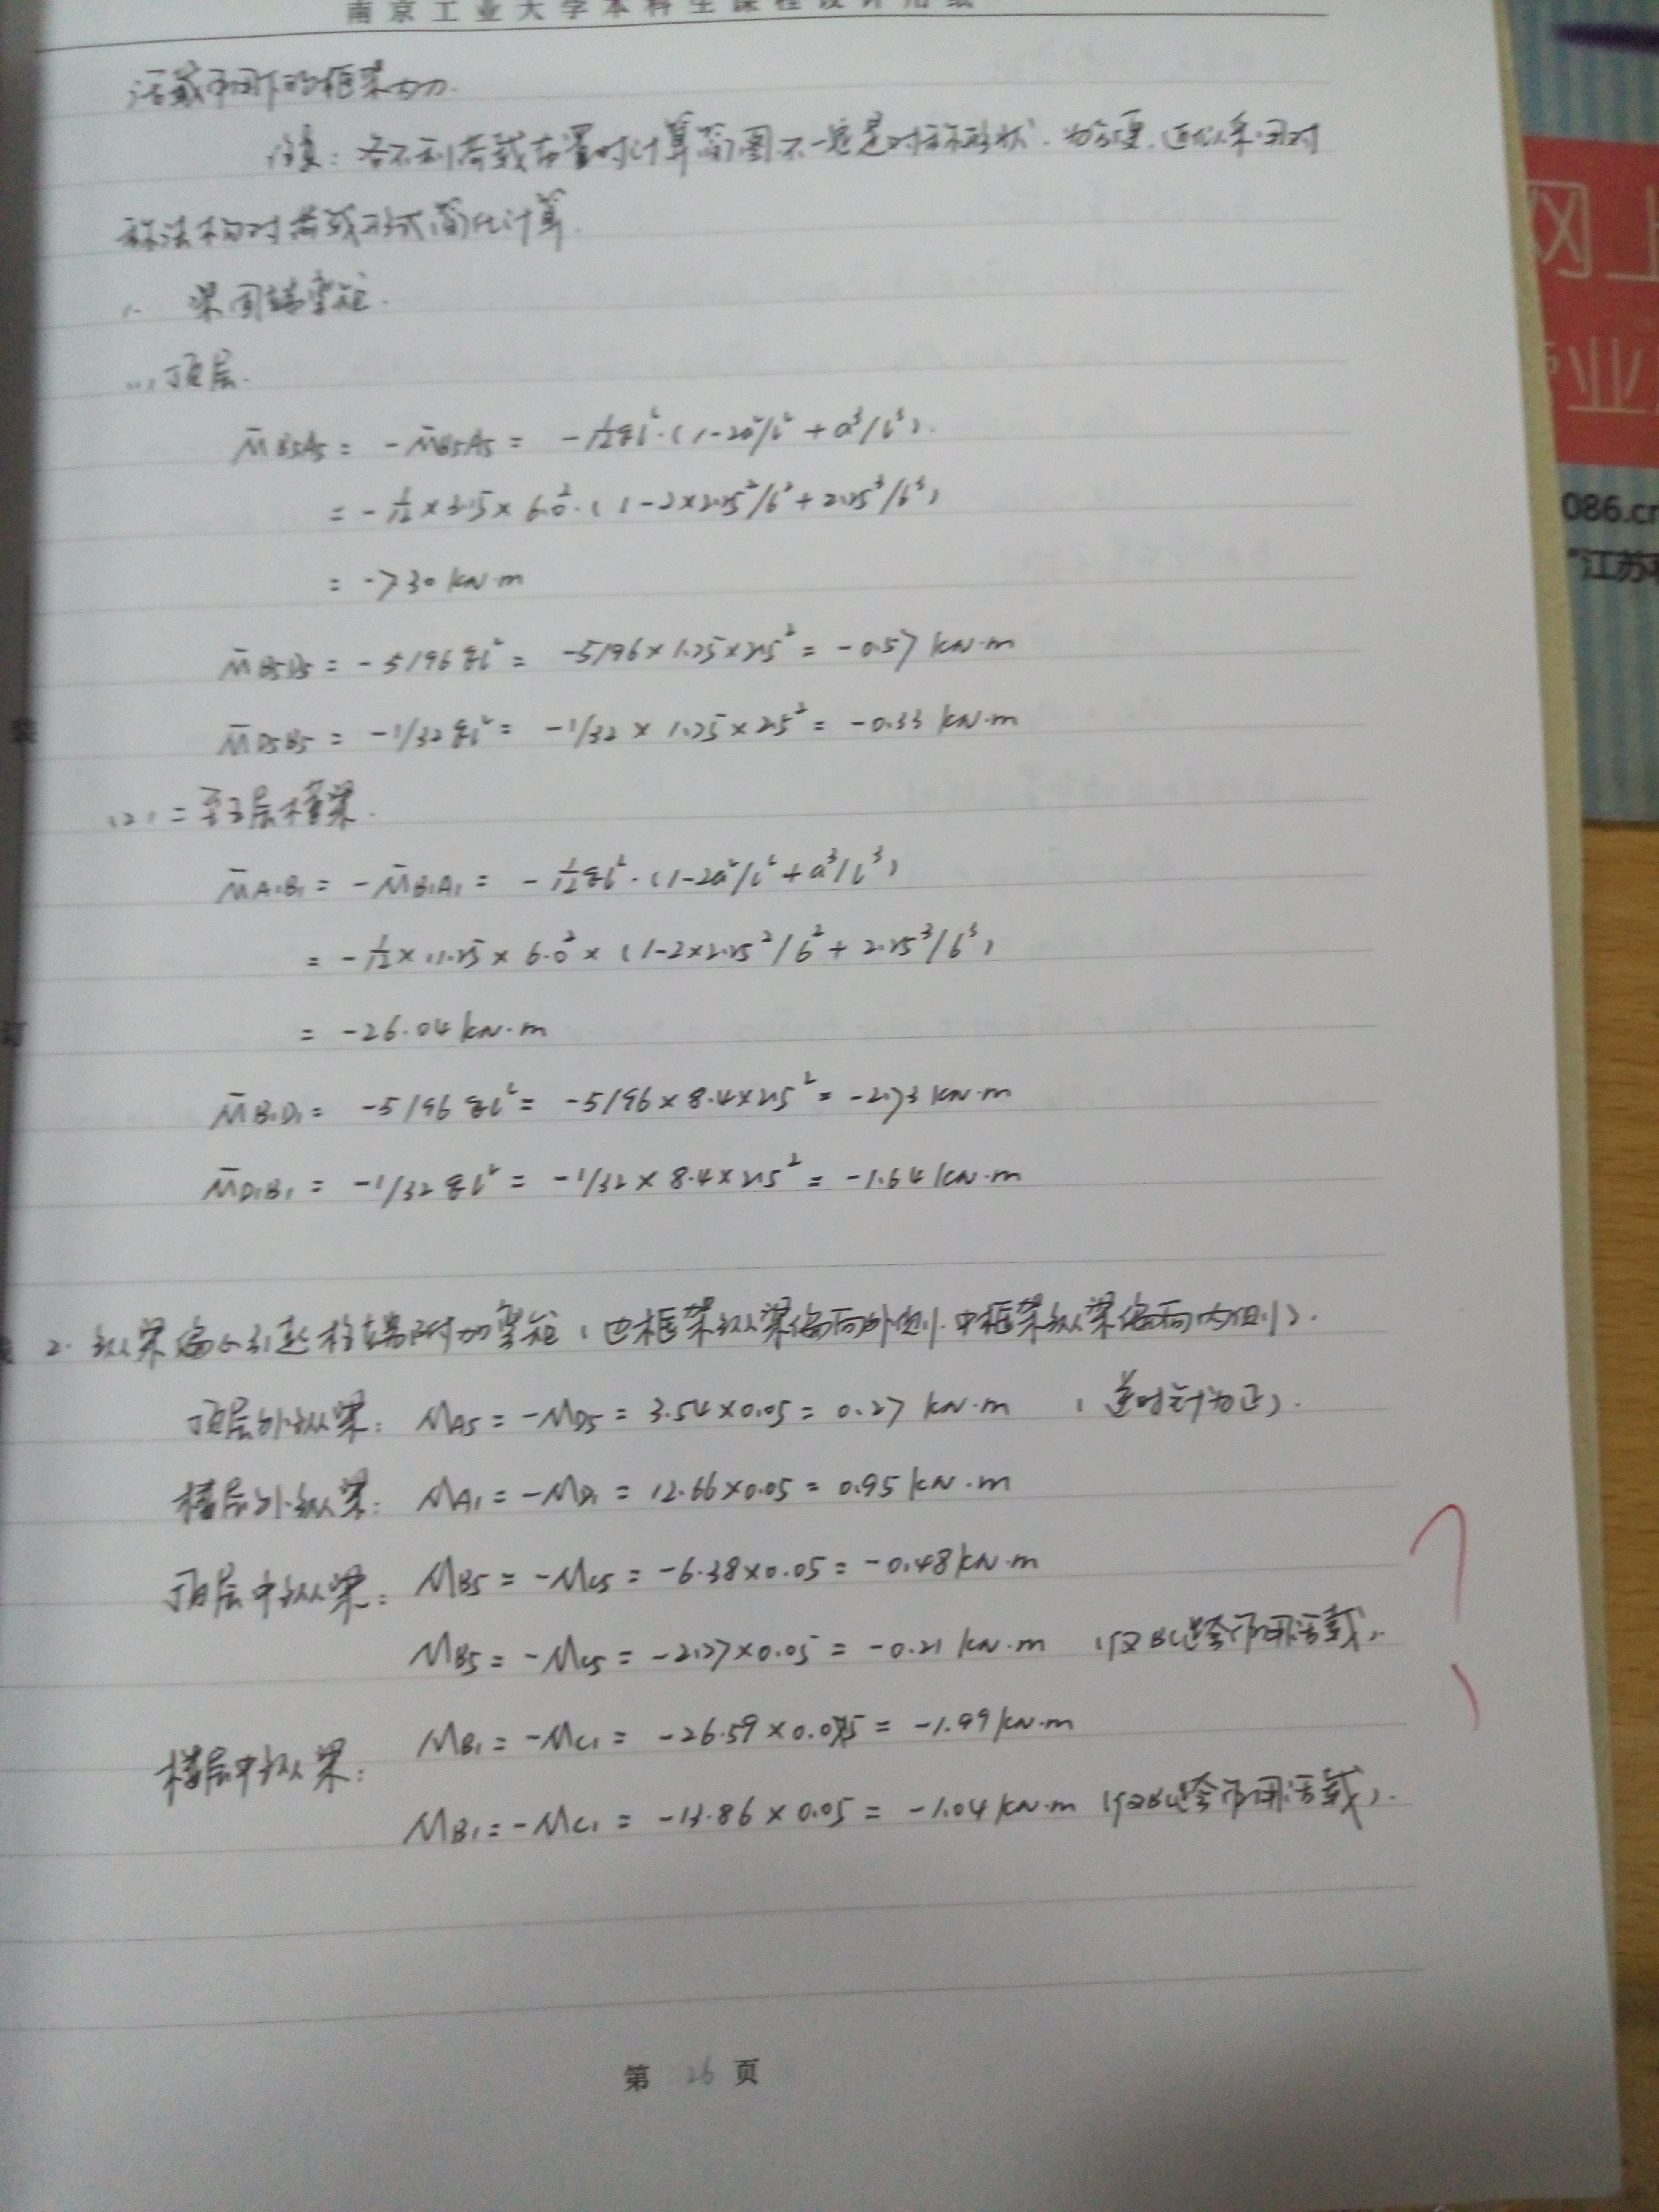 南京工业大学本科生课程设计用纸
活载作用下的框架内力.
注意: 各不利荷载布置时计算简图不一定是对称形状. 为方便, 近似采用对
称法构对荷载形式简化计算.
1. 梁固端弯矩.
(1) 顶层.
M̄B5A5 = -M̄B5A5 = -1/12 ql²·(1-2a²/l² + a³/l³).
= -1/12 × 3.15 × 6.0²·(1-2×2.25²/6² + 2.25³/6³)
= -7.30 kN·m
M̄B5D5 = -5/96 ql² = -5/96 × 1.75 × 2.5² = -0.57 kN·m
M̄D5B5 = -1/32 ql² = -1/32 × 1.75 × 2.5² = -0.33 kN·m
(2) 二至五层横梁.
M̄A1B1 = -M̄B1A1 = -1/12 ql²·(1-2a²/l² + a³/l³)
= -1/12 × 11.25 × 6.0² × (1-2×2.25²/6² + 2.25³/6³)
= -26.04 kN·m
M̄B1D1 = -5/96 ql² = -5/96 × 8.4 × 2.5² = -2.73 kN·m
M̄D1B1 = -1/32 ql² = -1/32 × 8.4 × 2.5² = -1.64 kN·m
2. 纵梁偏心引起柱端附加弯矩 (边框架纵梁偏向外侧, 中框架纵梁偏向内侧).
顶层外纵梁: MA5 = -MD5 = 3.54×0.05 = 0.27 kN·m (逆时针为正).
楼层外纵梁: MA1 = -MD1 = 12.66×0.05 = 0.95 kN·m
顶层中纵梁: MB5 = -MC5 = -6.38×0.05 = -0.48 kN·m
MB5 = -MC5 = -2.77×0.05 = -0.21 kN·m (仅BC跨作用活载).
楼层中纵梁: MB1 = -MC1 = -26.59×0.075 = -1.99 kN·m
MB1 = -MC1 = -13.86×0.05 = -1.04 kN·m (仅BC跨作用活载).
第 26 页
网上
业
086.cn
"江苏
装
订